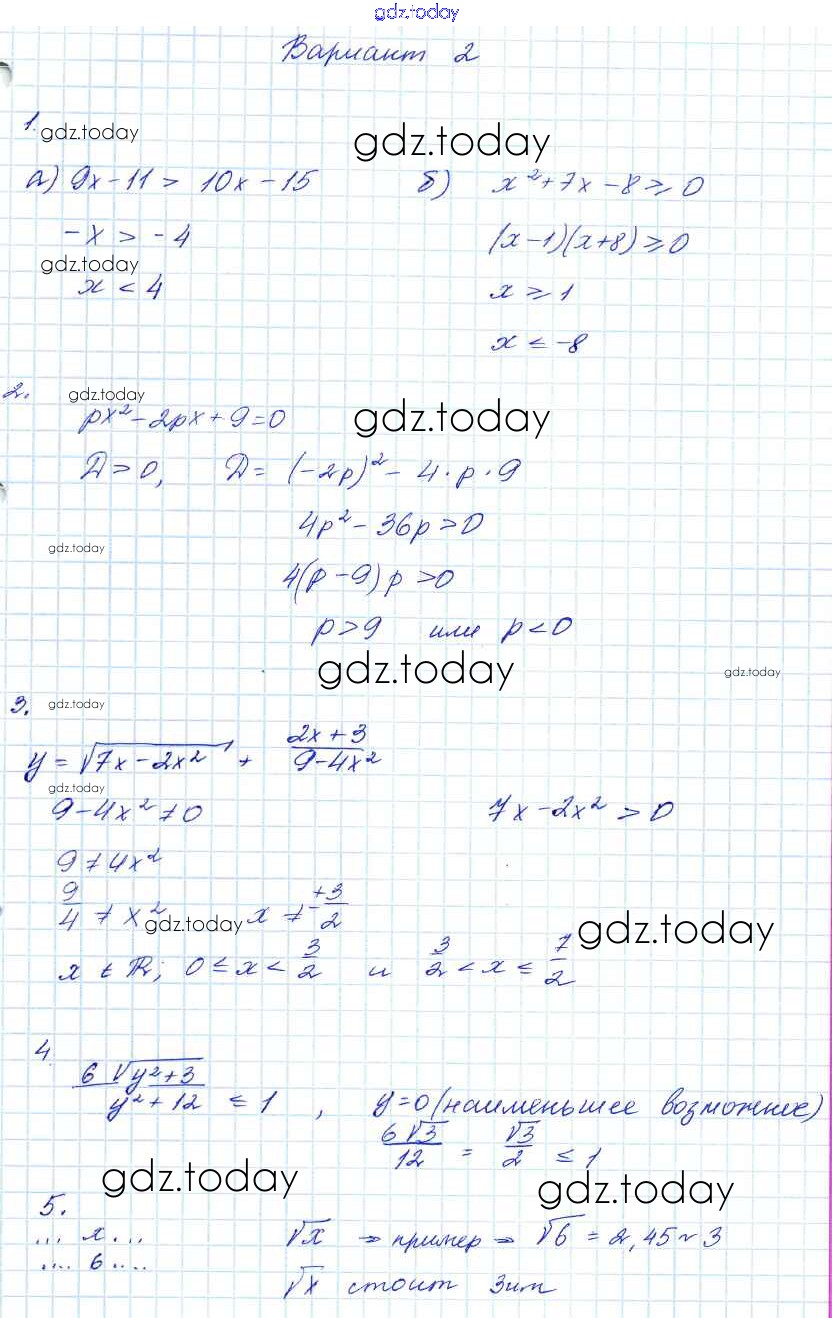 gdz.today
Вариант 2
1. gdz.today
gdz.today
а) 9x-11 > 10x-15
б) x²+7x-8 ≥ 0
-x > -4
(x-1)(x+8) ≥ 0
gdz.today
x < 4
x ≥ 1
x ≤ -8
2. gdz.today
gdz.today
px²-2px+9=0
D>0, D= (-2p)²-4·p·9
4p²-36p>0
gdz.today
4(p-9)p>0
p>9 или p<0
gdz.today
gdz.today
3. gdz.today
y=√(7x-2x²) + (2x+3)/(9-4x²)
gdz.today
9-4x²≠0
7x-2x² > 0
9≠4x²
9/4 ≠ x² x ≠ ±3/2
gdz.today
gdz.today
x ∈ R; 0≤x<3/2 и 3/2<x≤7/2
4
6√(y²+3)/(y²+12) ≤ 1, y=0 (наименьшее возможное)
6√3/12 = √3/2 ≤ 1
gdz.today
gdz.today
5.
... x ... √x → пример → √6 = 2,45 ~ 3
.... 6 ....
√x стоит